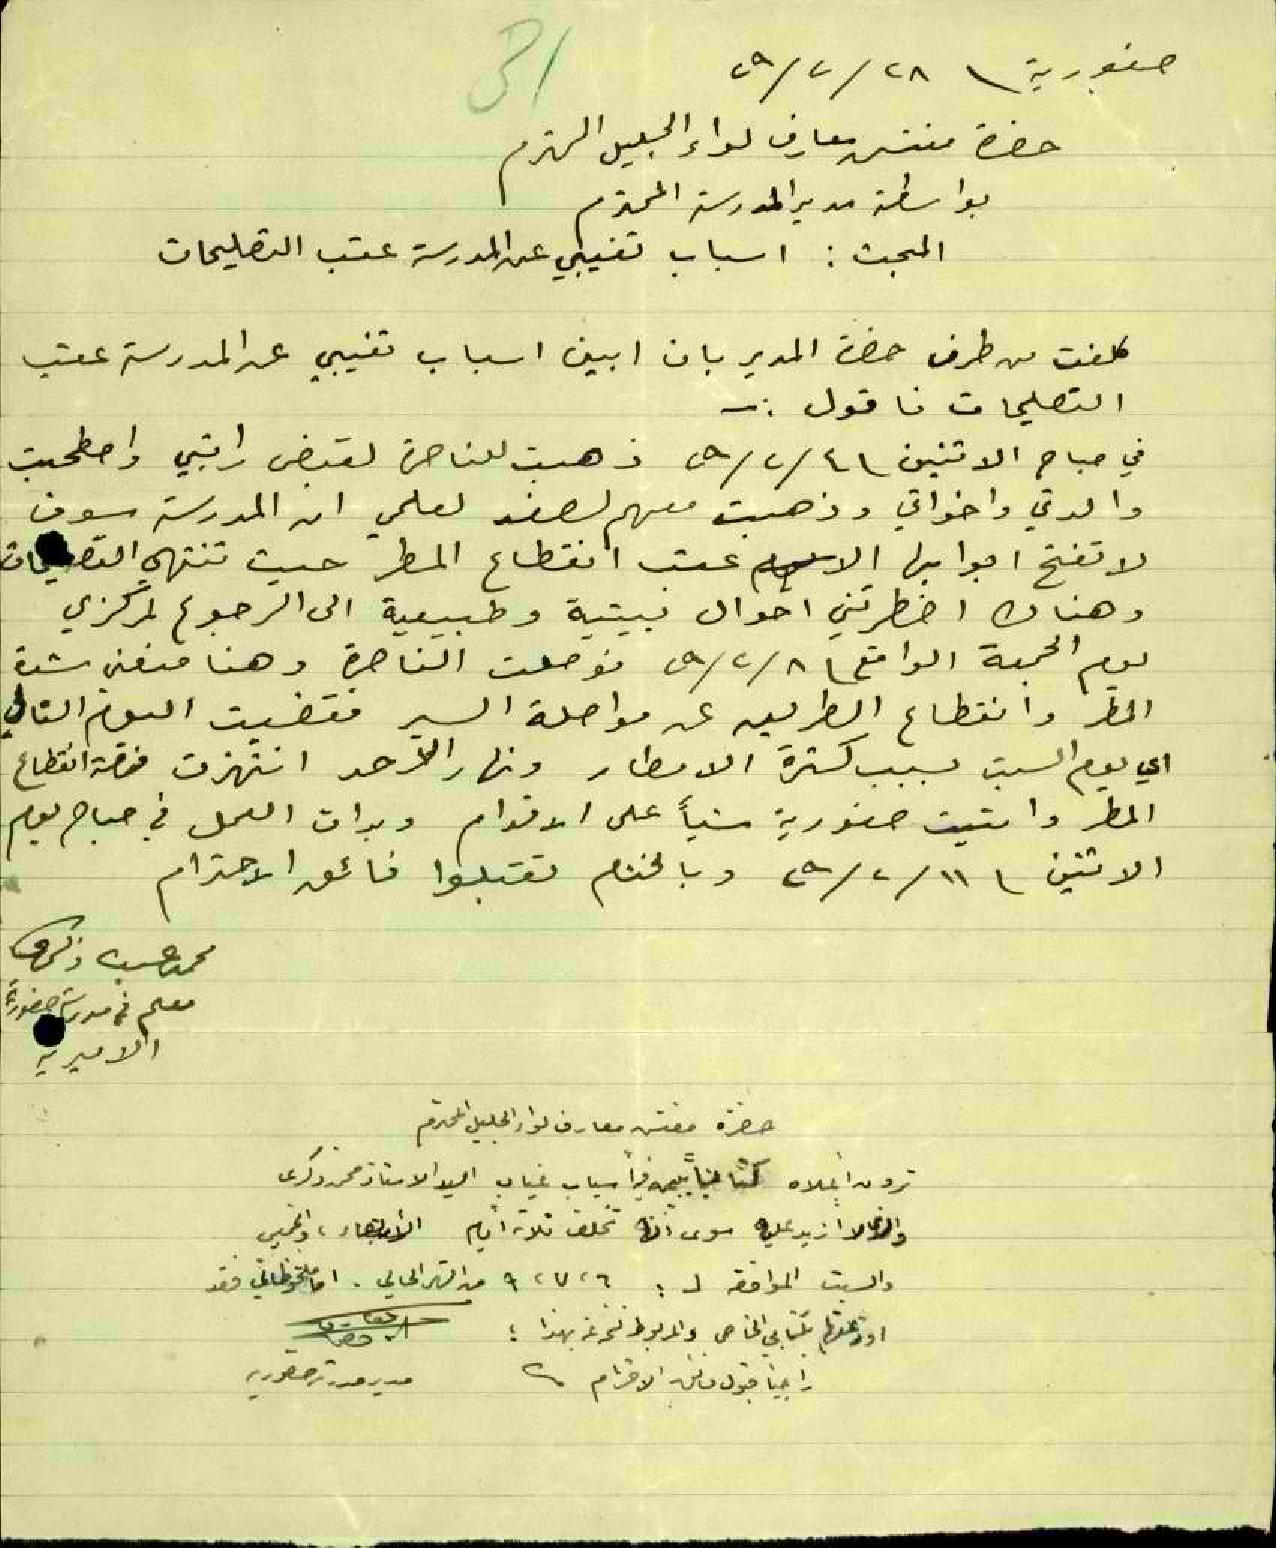 31
صفورية \ ٢٨/٢/٢٩
حضرة مفتش معارف لواء الجليل المحترم
بواسطة مدير المدرسة المحترم
المبحث : اسباب تغيبي عن المدرسة عقب التصليحات
كلفت من طرف حضرة المدير بان ابين اسباب تغيبي عن المدرسة عقب
التصليحات فاقول :-
في صباح الاثنين \ ٤/٢/٢٩ ذهبت للناصرة لقبض راتبي واصطحبت
والدتي واخواتي وذهبت معهم لصفد لعلمي ان المدرسة سوف
لا تفتح ابوابها الا عقب انقطاع المطر حيث تنتهي التصليحات
وهناك اضطرتني احوال بيتية وطبيعية الى الرجوع لمركزي
يوم الجمعة الواقع \ ٨/٢/٢٩ فوصلت الناصرة وهنا منعني شدة
المطر وانقطاع الطريق عن مواصلة السير فقضيت اليوم التالي
اي يوم السبت بسبب كثرة الامطار ونهار الأحد انتهزت فرصة انقطاع
المطر واتيت صفورية مشياً على الاقدام وبدات العمل في صباح يوم
الاثنين \ ١١/٢/٢٩ وبالختام تقبلوا فائق الاحترام
محمد زكري
معلم في مدرسة صفورية
الاميرية
حضرة مفتش معارف لواء الجليل المحترم
ترون أعلاه كتاباً اسباب غياب السيد الاستاذ محمد زكري
وانا لا ازيد عليه سوى أنه تخلف ثلاثة أيام الأربعاء، والخميس
والسبت الموافقة لـ : ٦ و ٧ و ٩ من الشهر الحالي . اما فقد
بكتابي الخاص والمربوط بهذا ؛
راجياً قبول فائق الاحترام
مدير مدرسة صفورية